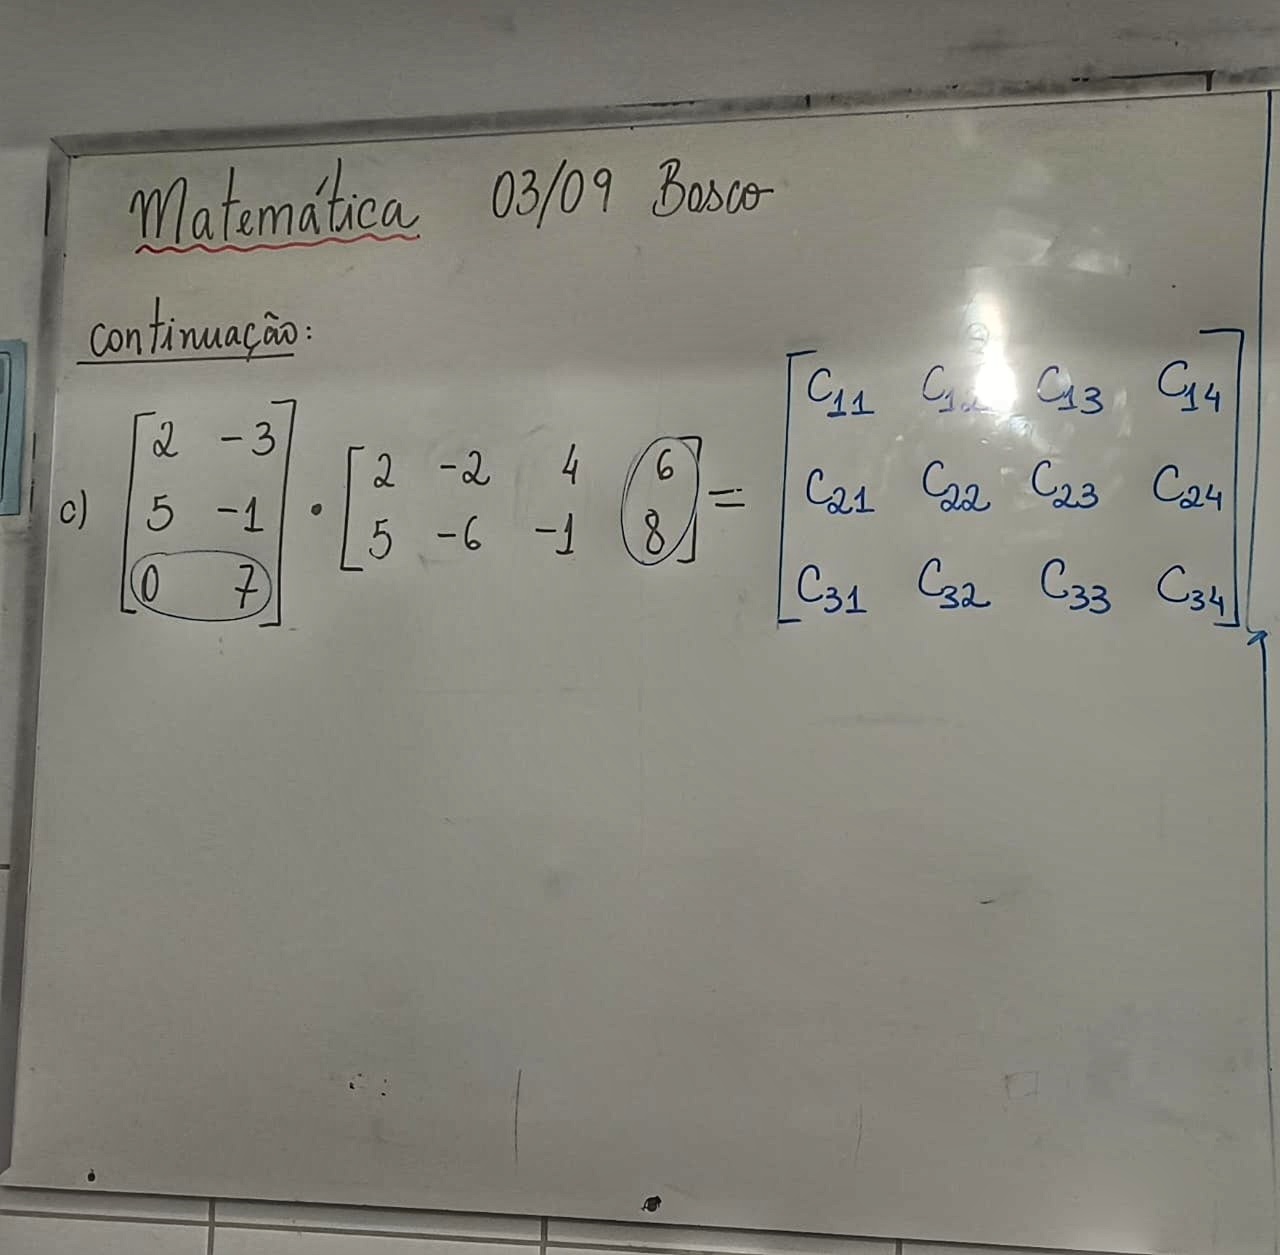 Matemática 03/09 Bosco
continuação:
c) [2 -3; 5 -1; 0 7] · [2 -2 4 6; 5 -6 -1 8] = [C11 C12 C13 C14; C21 C22 C23 C24; C31 C32 C33 C34]